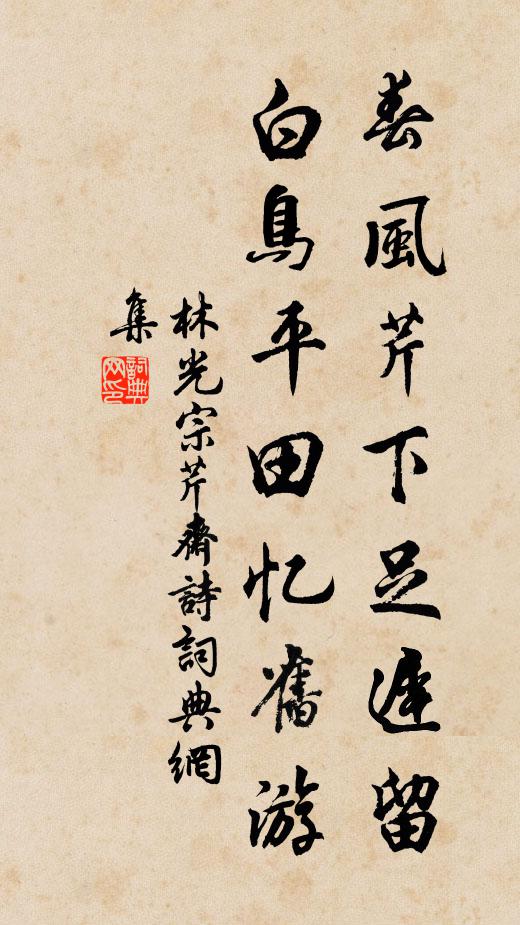 春風芹下足遲留
白鳥平田忆舊游
林光宗芹齋詩詞典網
集
詞典网印